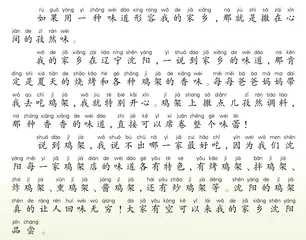 rú guǒ yòng yì zhǒng wèi dào xíng róng wǒ de jiā xiāng nà jiù shì sǎ zài xīn
如果用一种味道形容我的家乡，那就是撒在心
jiān de zī rán wèi
间的孜然味。
wǒ de jiā xiāng zài liáo níng shěn yáng yì shuō dào jiā xiāng de wèi dào nà kěn
我的家乡在辽宁沈阳，一说到家乡的味道，那肯
dìng shì xià tiān de shāo kǎo hé gè zhǒng jī jià de xiāng wèi měi měi bà ba mā ma dài
定是夏天的烧烤和各种鸡架的香味。每每爸爸妈妈带
wǒ qù chī jī jià wǒ jiù tè bié kāi xīn jī jià shàng sǎ diǎn ér zī rán tiáo liào
我去吃鸡架，我就特别开心。鸡架上撒点儿孜然调料，
nà zhǒng xiāng xiāng de wèi dào zhí jiē kě yǐ xí juǎn zhěng gè wèi lěi
那种香香的味道，直接可以席卷整个味蕾！
shuō dào jī jià wǒ shuō bù chū nǎ yì jiā zuì hǎo chī yīn wèi wǒ men shěn
说到鸡架，我说不出哪一家最好吃，因为我们沈
yáng měi yì jiā jī jià diàn de wèi dào gè yǒu tè sè yǒu kǎo jī jià bàn jī jià
阳每一家鸡架店的味道各有特色，有烤鸡架、拌鸡架、
zhá jī jià xūn jī jià jiàng jī jià hái yǒu chǎo jī jià děng shěn yáng de jī jià
炸鸡架、熏鸡架、酱鸡架，还有炒鸡架等。沈阳的鸡架
zhēn de ràng rén huí wèi wú qióng dà jiā yǒu kòng kě yǐ lái wǒ de jiā xiāng shěn yáng
真的让人回味无穷！大家有空可以来我的家乡沈阳
pǐn cháng
品尝。